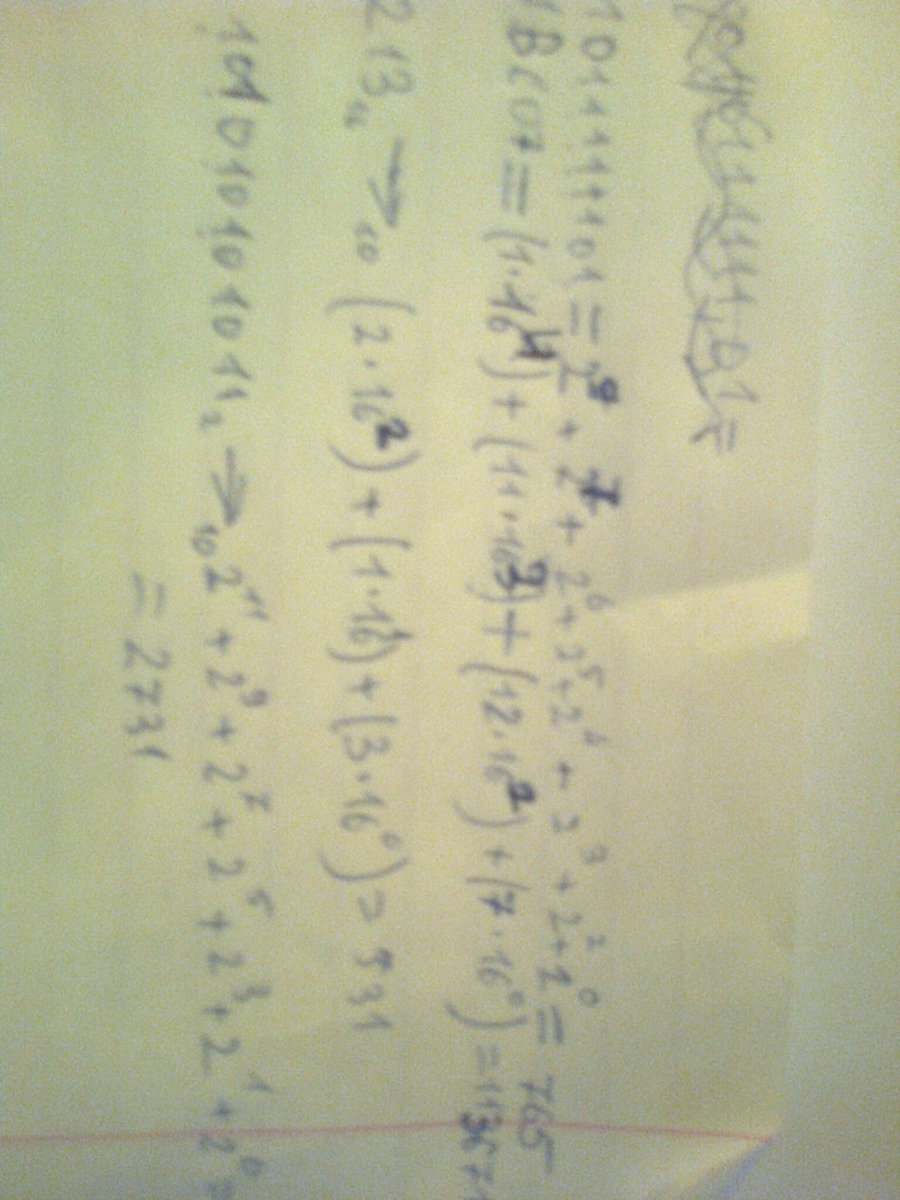 1011111101 = 2⁹ + 2⁷ + 2⁶ + 2⁵ + 2⁴ + 2³ + 2² + 2⁰ = 765
1BC07 = (1·16⁴) + (11·16³) + (12·16²) + (7·16⁰) =
213₁₆ → ₁₀ (2·16²) + (1·16¹) + (3·16⁰) = 531
101010101011₂ → ₁₀ 2¹¹ + 2⁹ + 2⁷ + 2⁵ + 2³ + 2¹ + 2⁰ =
= 2731